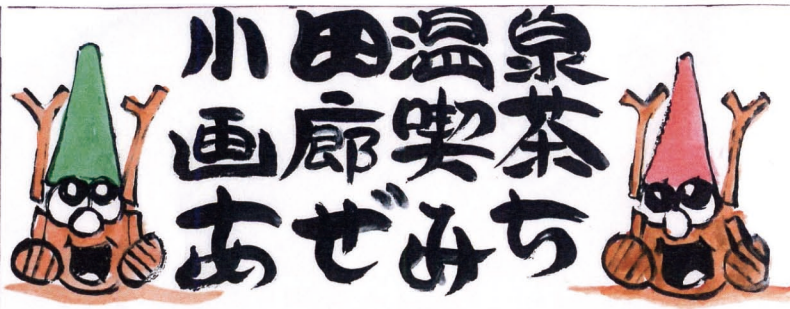 小田温泉
画廊喫茶
あぜみち